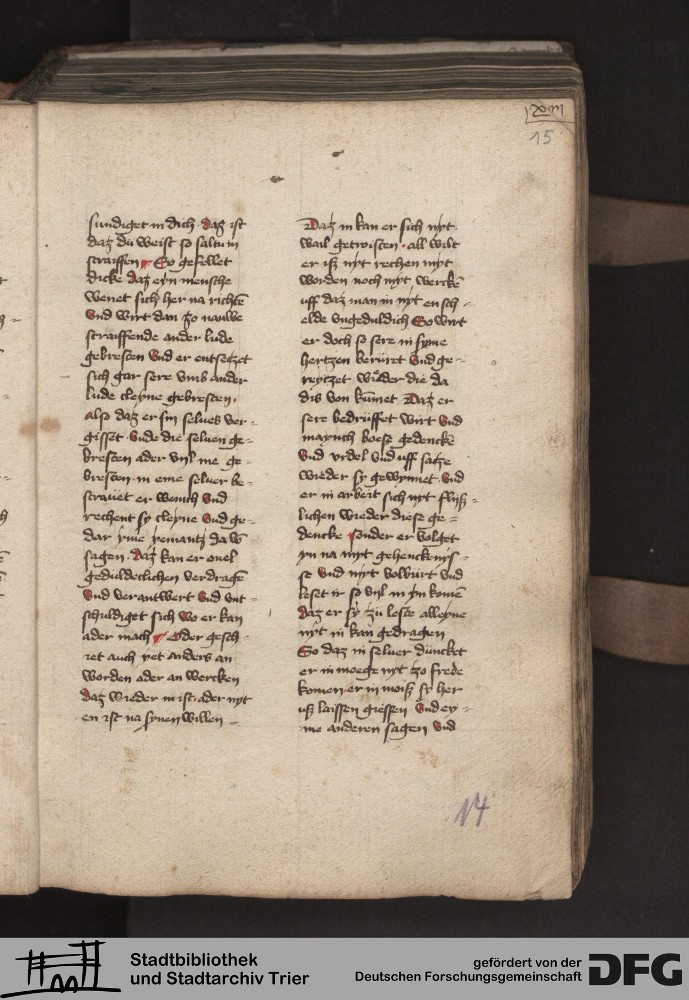 15
sundiget in dich · daz ist
daz du weist so saltu in
straiffen So geschiet
dicke daz eyn mensche
wenet sich her na richtē
Und wirt dan zo nauwe
straiffende ander lude
gebresten Und er entsetzet
sich gar sere vmb ander
lude cleyne gebresten ·
also daz er sin selues ver-
gisset · Unde die seluen ge-
bresten ader vyl me ge-
bresten · in eme seluer be-
er wenich Und
rechent sy cleyne Und ge-
dar yme yemantz da vō
sagen · daz kan er ouel
geduldeclichen verdragē
Und verantwert Und vnt-
schuldiget sich wo er kan
ader mach Oder gesch-
iet auch yet anders an
worden ader an wercken
daz wieder in ist ader nyt
en ist na synen willen -
Daz in kan er sich nyt
wail getroisten · all wilt
er isz nyt rechen myt
worden noch myt werckē
uff daz man in nyt en sch-
elde vngeduldich So wirt
er doch so sere in syme
hertzen berüret Und ge-
reytzet wieder die da
dis von kumet Daz er
sere bedrüffet wirt Und
maynch boese gedenckē
Und vrdel vnd uff satze
wieder sy gewynnet · Und
er in arbeit sich nyt flyß-
lichen wieder diese ge-
dencke sonder er volget
yn na myt gehencknys-
se Und myt volbürt Und
leset ir so vyl in yn komē
daz er sy zu leste alleyne
nyt in kan gedragen
So daz in seluer düncket
er in moege nyt zo frede
komen er in moiß sy her
uß laissen giessen · Und ey-
me anderen sagen Und
14
Stadtbibliothek
und Stadtarchiv Trier
gefördert von der
Deutschen Forschungsgemeinschaft
DFG